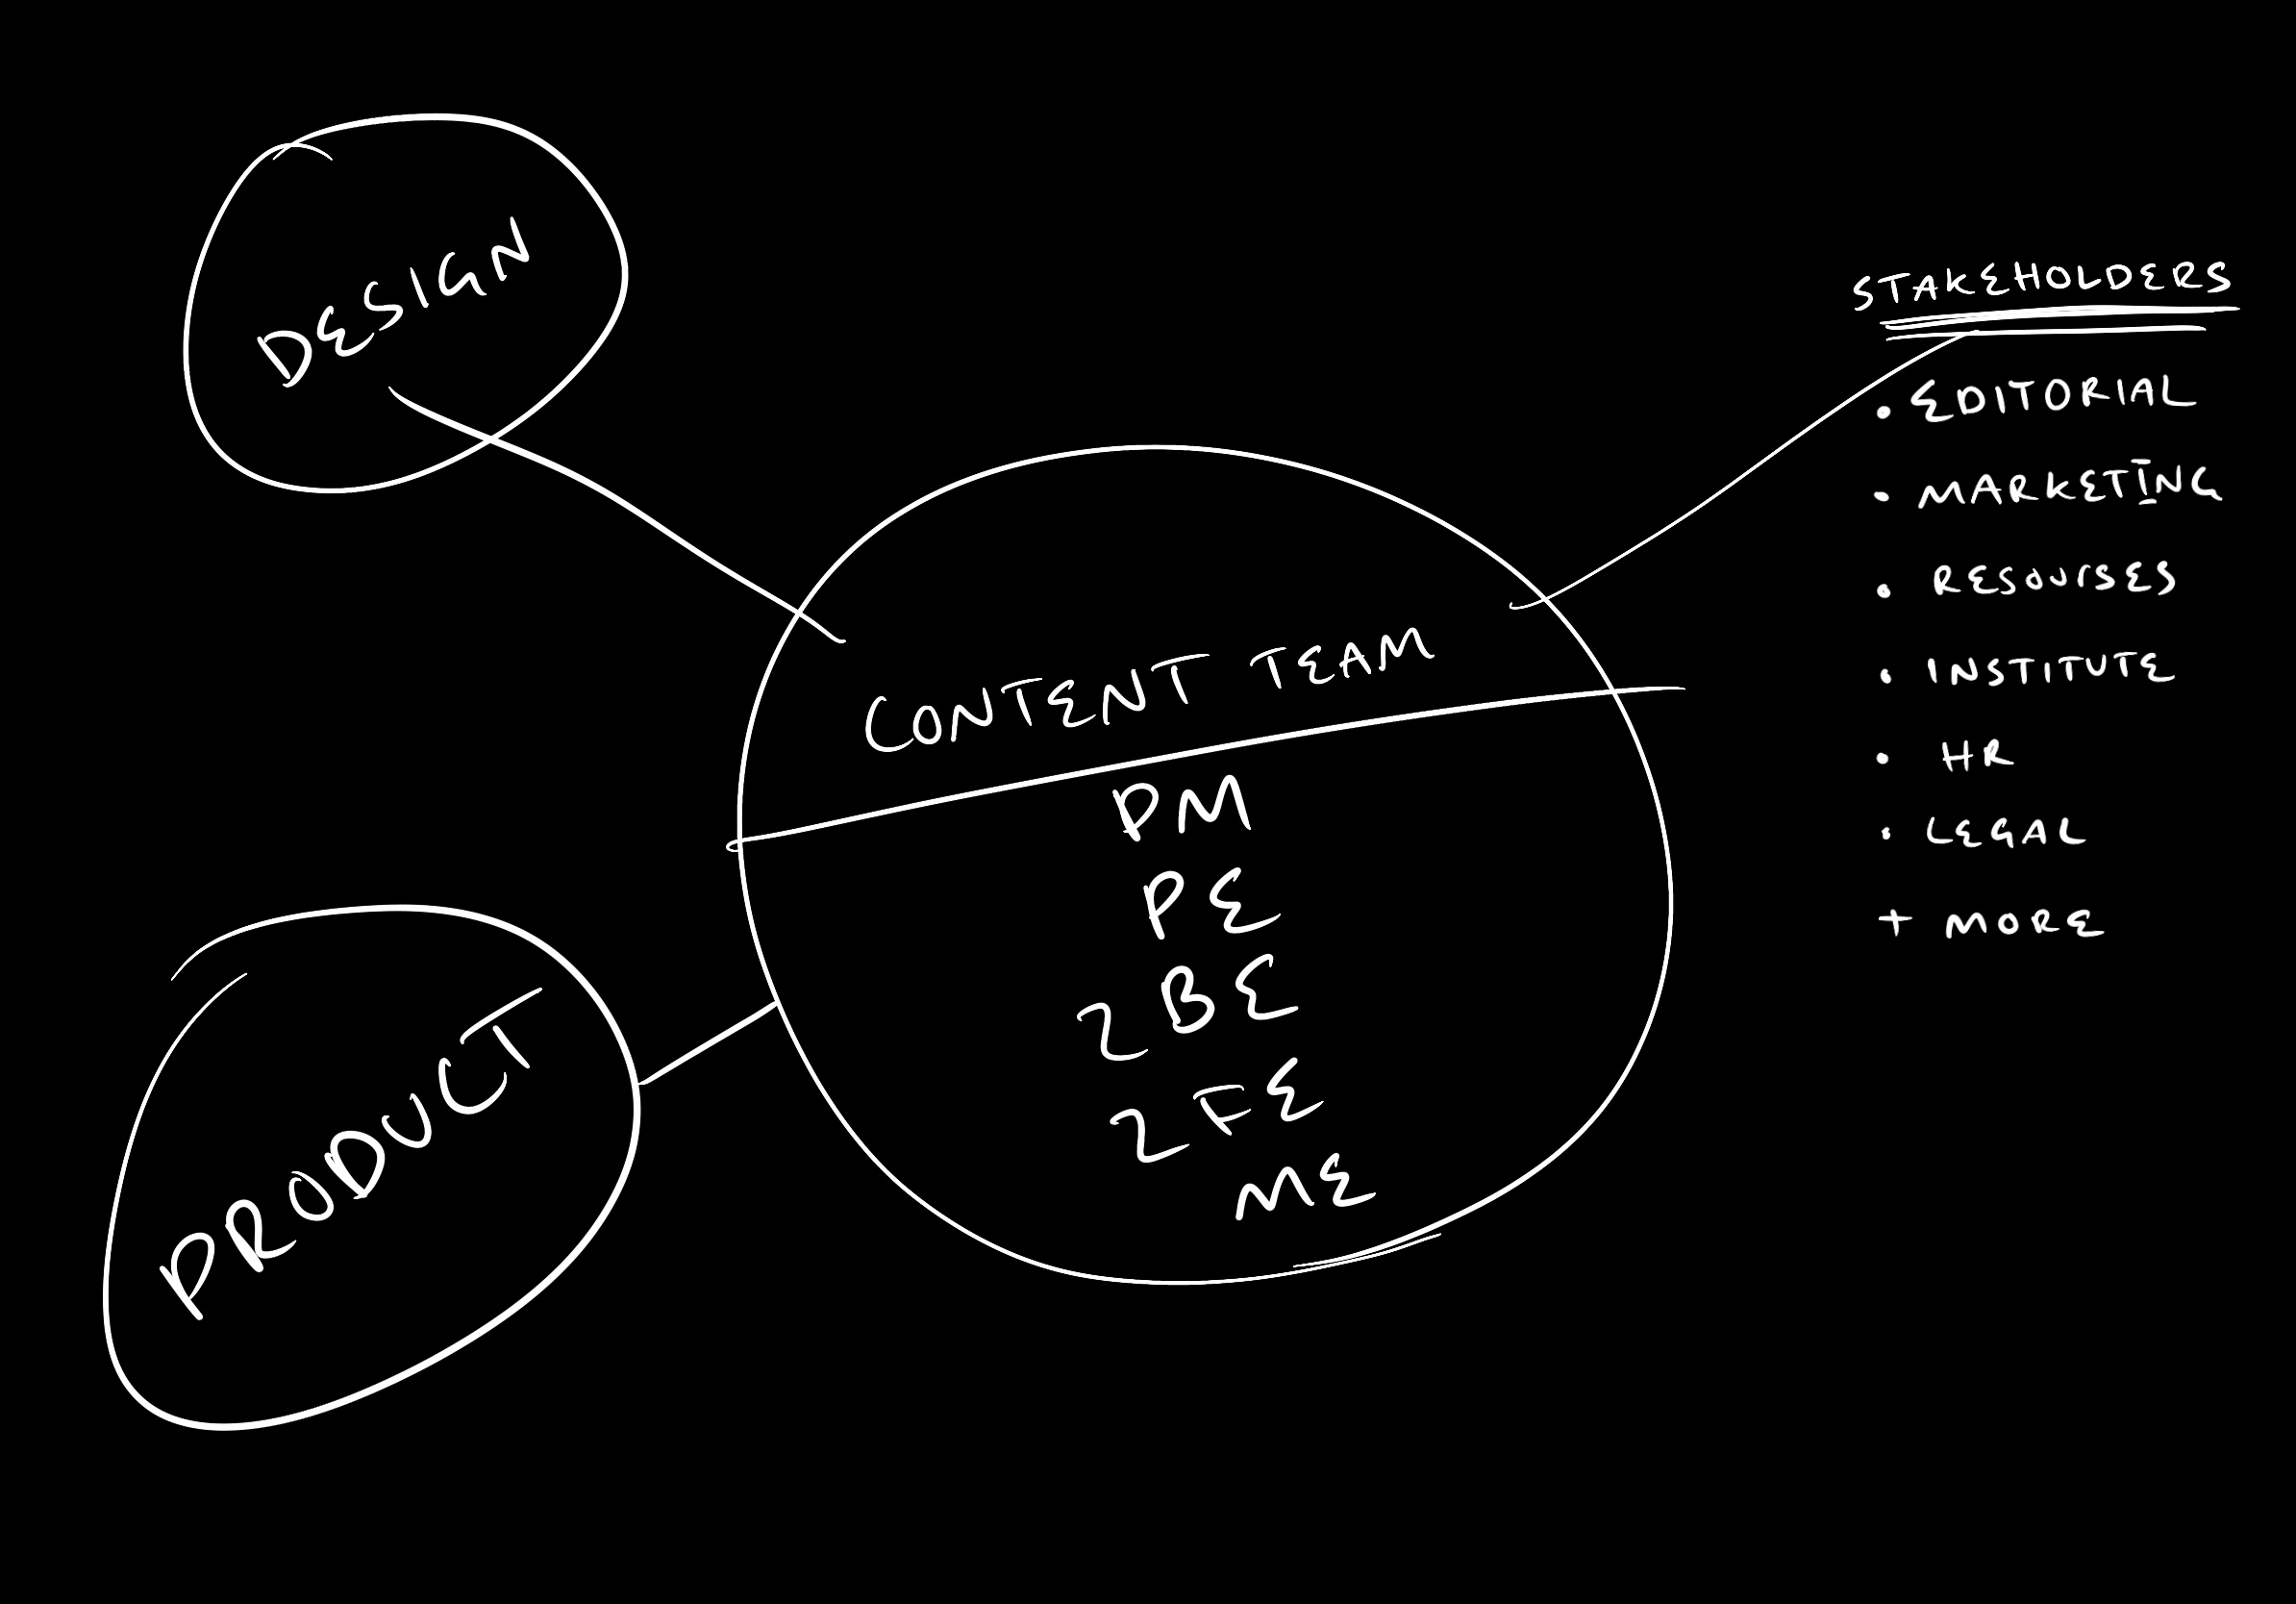 DESIGN
PRODUCT
CONTENT TEAM
PM
PE
2 BE
2 FE
ME
STAKEHOLDERS
• EDITORIAL
• MARKETING
• RESOURSES
• INSTITUTE
• HR
• LEGAL
+ MORE